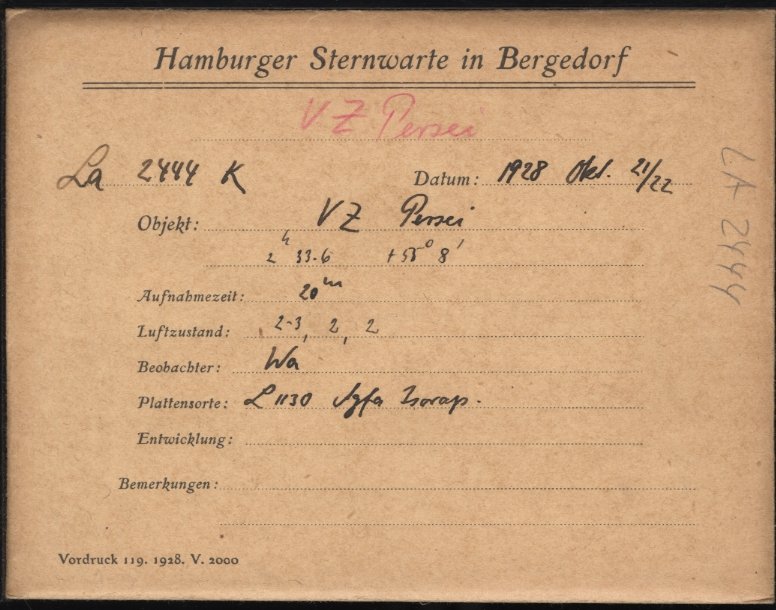 Hamburger Sternwarte in Bergedorf
VZ Persei
La 2444 K Datum: 1928 Okt. 21/22
Objekt: VZ Persei
2h 33.6 +55° 8'
Aufnahmezeit: 20m
Luftzustand: 2-3, 2, 2
Beobachter: Wa
Plattensorte: L 1130 Agfa Isorap.
Entwicklung:
Bemerkungen:
Vordruck 119. 1928. V. 2000
LA 2444